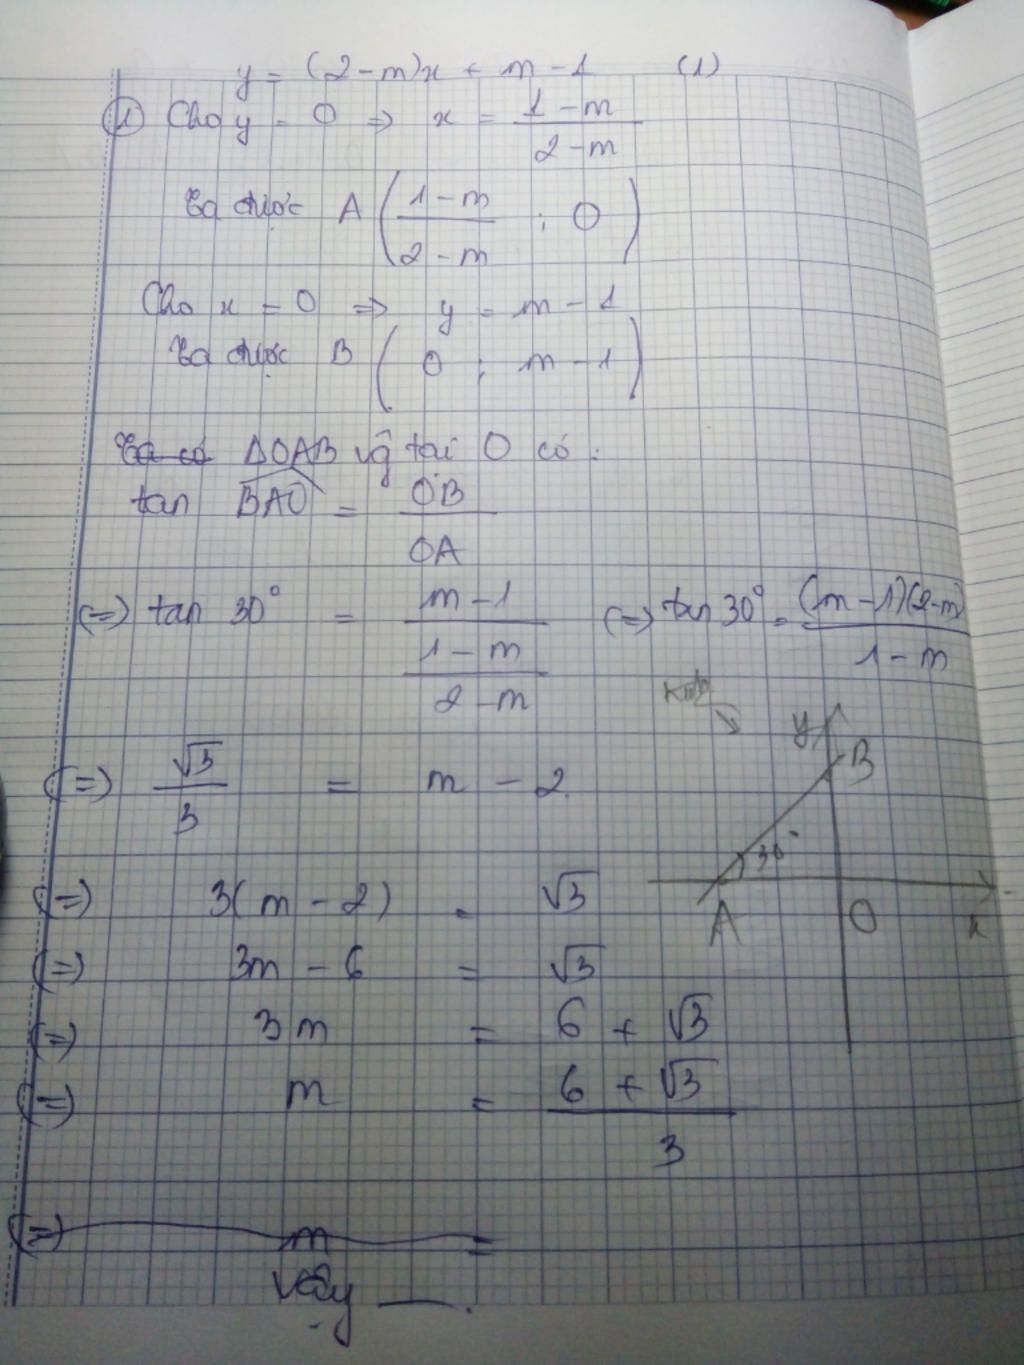 y = (2 - m)x + m - 1 (1)
① Cho y = 0 => x = (1 - m)/(2 - m)
Ta được A ((1 - m)/(2 - m) ; 0)
Cho x = 0 => y = m - 1
Ta được B (0 ; m - 1)
Ta có ΔOAB vg tại O có :
tan BAO = OB/OA
(=) tan 30° = (m - 1)/((1 - m)/(2 - m)) (=) tan 30° = (m - 1)(2 - m)/(1 - m)
(=) √3/3 = m - 2
(=) 3(m - 2) = √3
(=) 3m - 6 = √3
(=) 3m = 6 + √3
(=) m = (6 + √3)/3
(=) m =
Vậy ___.
y
B
30°
A
O
x